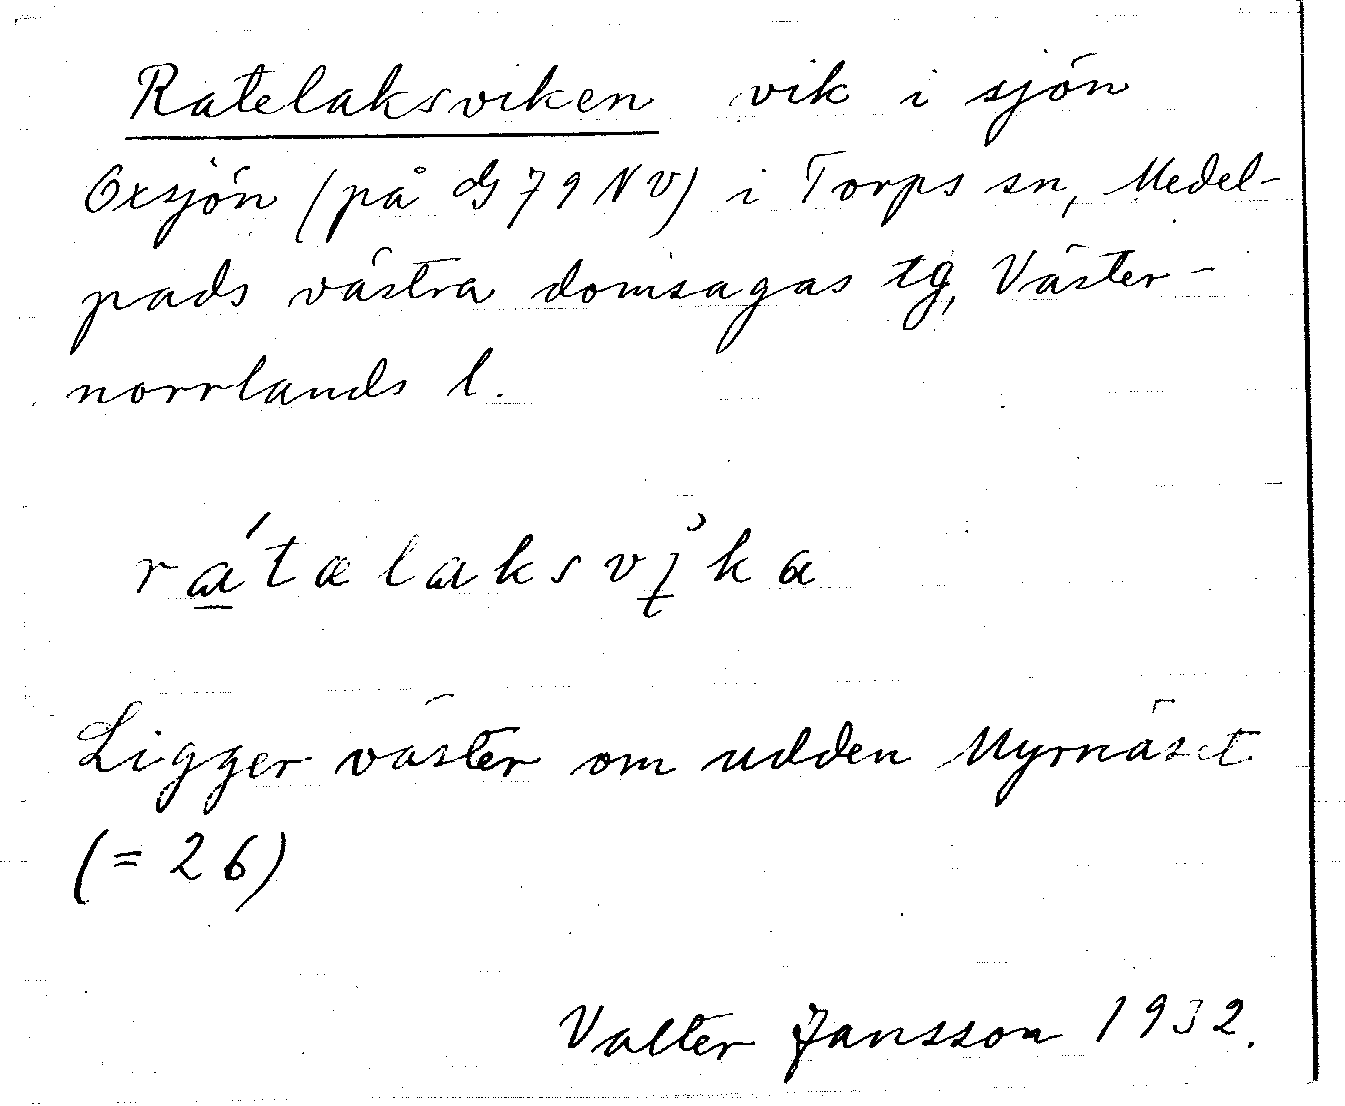 Ratelaksviken vik i sjön
Oxsjön (på G 79 NV) i Torps sn, Medel-
pads västra domsagas tg, Väster-
norrlands l.
rátælaksvika
Ligger väster om udden Myrnäset
(= 26)
Valter Jansson 1932.